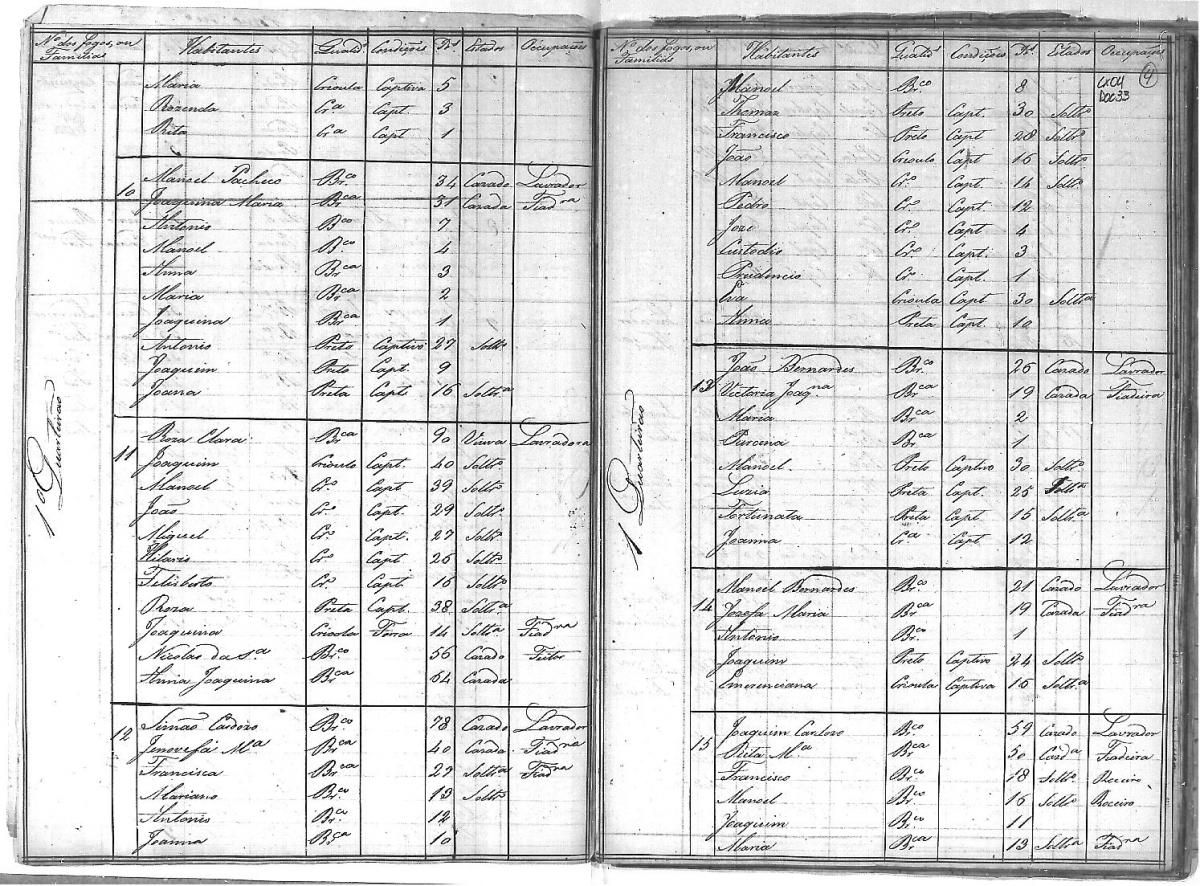 Nº dos fogos, ou Familias Habitantes Qualid.es Condições Id.es Estados Occupações
Maria Crioula Captiva 5
Rozenda Cr.a Capt. 3
Rita Cr.a Capt 1
10 Manoel Pacheco Br.co 34 Cazado Lavrador
Joaquina Maria Br.ca 31 Cazada Fiad.ra
Antonio B.co 7
Manoel B.co 4
Anna Br.ca 3
Maria Br.ca 2
Joaquina Br.ca 1
Antonio Preto Captivo 27 Soltr.o
Joaquim Preto Capt. 9
Joana Preta Capt. 16 Soltr.a
1º Quarteirão
11 Roza Clara Br.ca 90 Viuva Lavradora
Joaquim Crioulo Capt. 40 Soltr.o
Manoel Cr.o Capt 39 Soltr.o
João Cr.o Capt. 29 Soltr.o
Miguel Cr.o Capt. 27 Soltr.o
Hilario Cr.o Capt 26 Soltr.o
Felisberto Cr.o Capt. 16 Soltr.o
Roza Preta Capt. 38 Soltr.a
Joaquina Crioola Forra 14 Soltr.a Fiad.ra
Nicolao da S.a Br.co 56 Cazado Feitor
Anna Joaquina Br.ca 64 Cazada
12 Simão Cardozo Br.co 78 Cazado Lavrador
Jenovefa M.a Br.ca 40 Cazada Fiad.ra
Francisca Br.ca 23 Soltr.a Fiad.ra
Mariano Br.co 13 Soltr.o
Antonio Br.co 12
Joanna B.ca 10
Nº dos fogos, ou Familias Habitantes Qualid.es Condições Id.es Estados Occupações
4
CX04
DOC33
Manoel Br.co 8
Thomaz Preto Capt. 30 Soltr.o
Francisco Preto Capt 28 Soltr.o
João Crioulo Capt 16 Soltr.o
Manoel Cr.o Capt. 14 Soltr.o
Pedro Cr.o Capt. 12
Joze Cr.o Capt 4
Custodio Cr.o Capt. 3
Prudencio Cr.o Capt. 1
Eva Crioula Capt 30 Soltr.a
Anna Preta Capt. 10
13 João Bernardes Br.co 26 Cazado Lavrador
Victoria Joaq.na Br.ca 19 Cazada Fiadeira
Maria Br.ca 2
Purcina Br.ca 1
Manoel Preto Captivo 30 Soltr.o
Luzia Preta Capt. 25 Soltr.a
Fortunata Preta Capt. 15 Soltr.a
Joanna Cr.a Capt. 12
1 Quarteirão
14 Manoel Bernardes Br.co 21 Cazado Lavrador
Jozefa Maria Br.ca 19 Cazada Fiad.ra
Antonio Br.co 1
Joaquim Preto Captivo 24 Soltr.o
Emerenciana Crioula Captiva 16 Soltr.a
15 Joaquim Cardozo B.co 59 Cazado Lavrador
Rita M.a Br.ca 50 Caz.da Fiadeira
Francisco Br.co 18 Soltr.o Roceiro
Manoel Br.co 16 Soltr.o Roceiro
Joaquim Br.co 11
Maria Br.ca 13 Soltr.a Fiad.ra